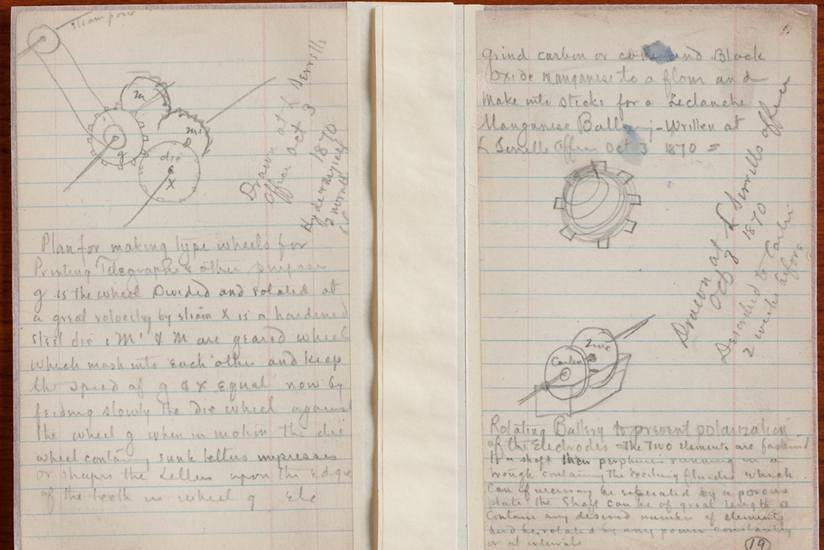 steam power
m
m'
g
die
X
Drawn at L Serrells
Office Oct 3
1870
Plan for making type wheels for
Printing Telegraphs & other purposes
g is the wheel Divided and rotated at
a great velocity by steam X is a hardened
steel die & M' & M are geared wheels
which mash into each other and keep
the speed of g & x Equal now by
feeding slowly the die wheel against
the wheel g when in motion the die
wheel containing sunk letters impresses
or shapes the Letters upon the Edge
of the teeth in wheel g Etc
grind carbon or coke and Black
Oxide Manganese to a flour and
Make into sticks for a Leclanche
Manganese Battery - Written at
L Serrells Office Oct 3 1870 =
Drawn at L Serrells Office
Oct 3 1870
Described to
2 weeks before
Zinc
Carbon
Rotating Battery to prevent polarization
of the Electrodes = The Two elements are fastened
to a shaft
trough containing the exciting fluids which
can if necessary be separated by a porous
plate the Shaft can be of great length &
Contain any desired number of elements
and be rotated by any power constantly
or at intervals
19